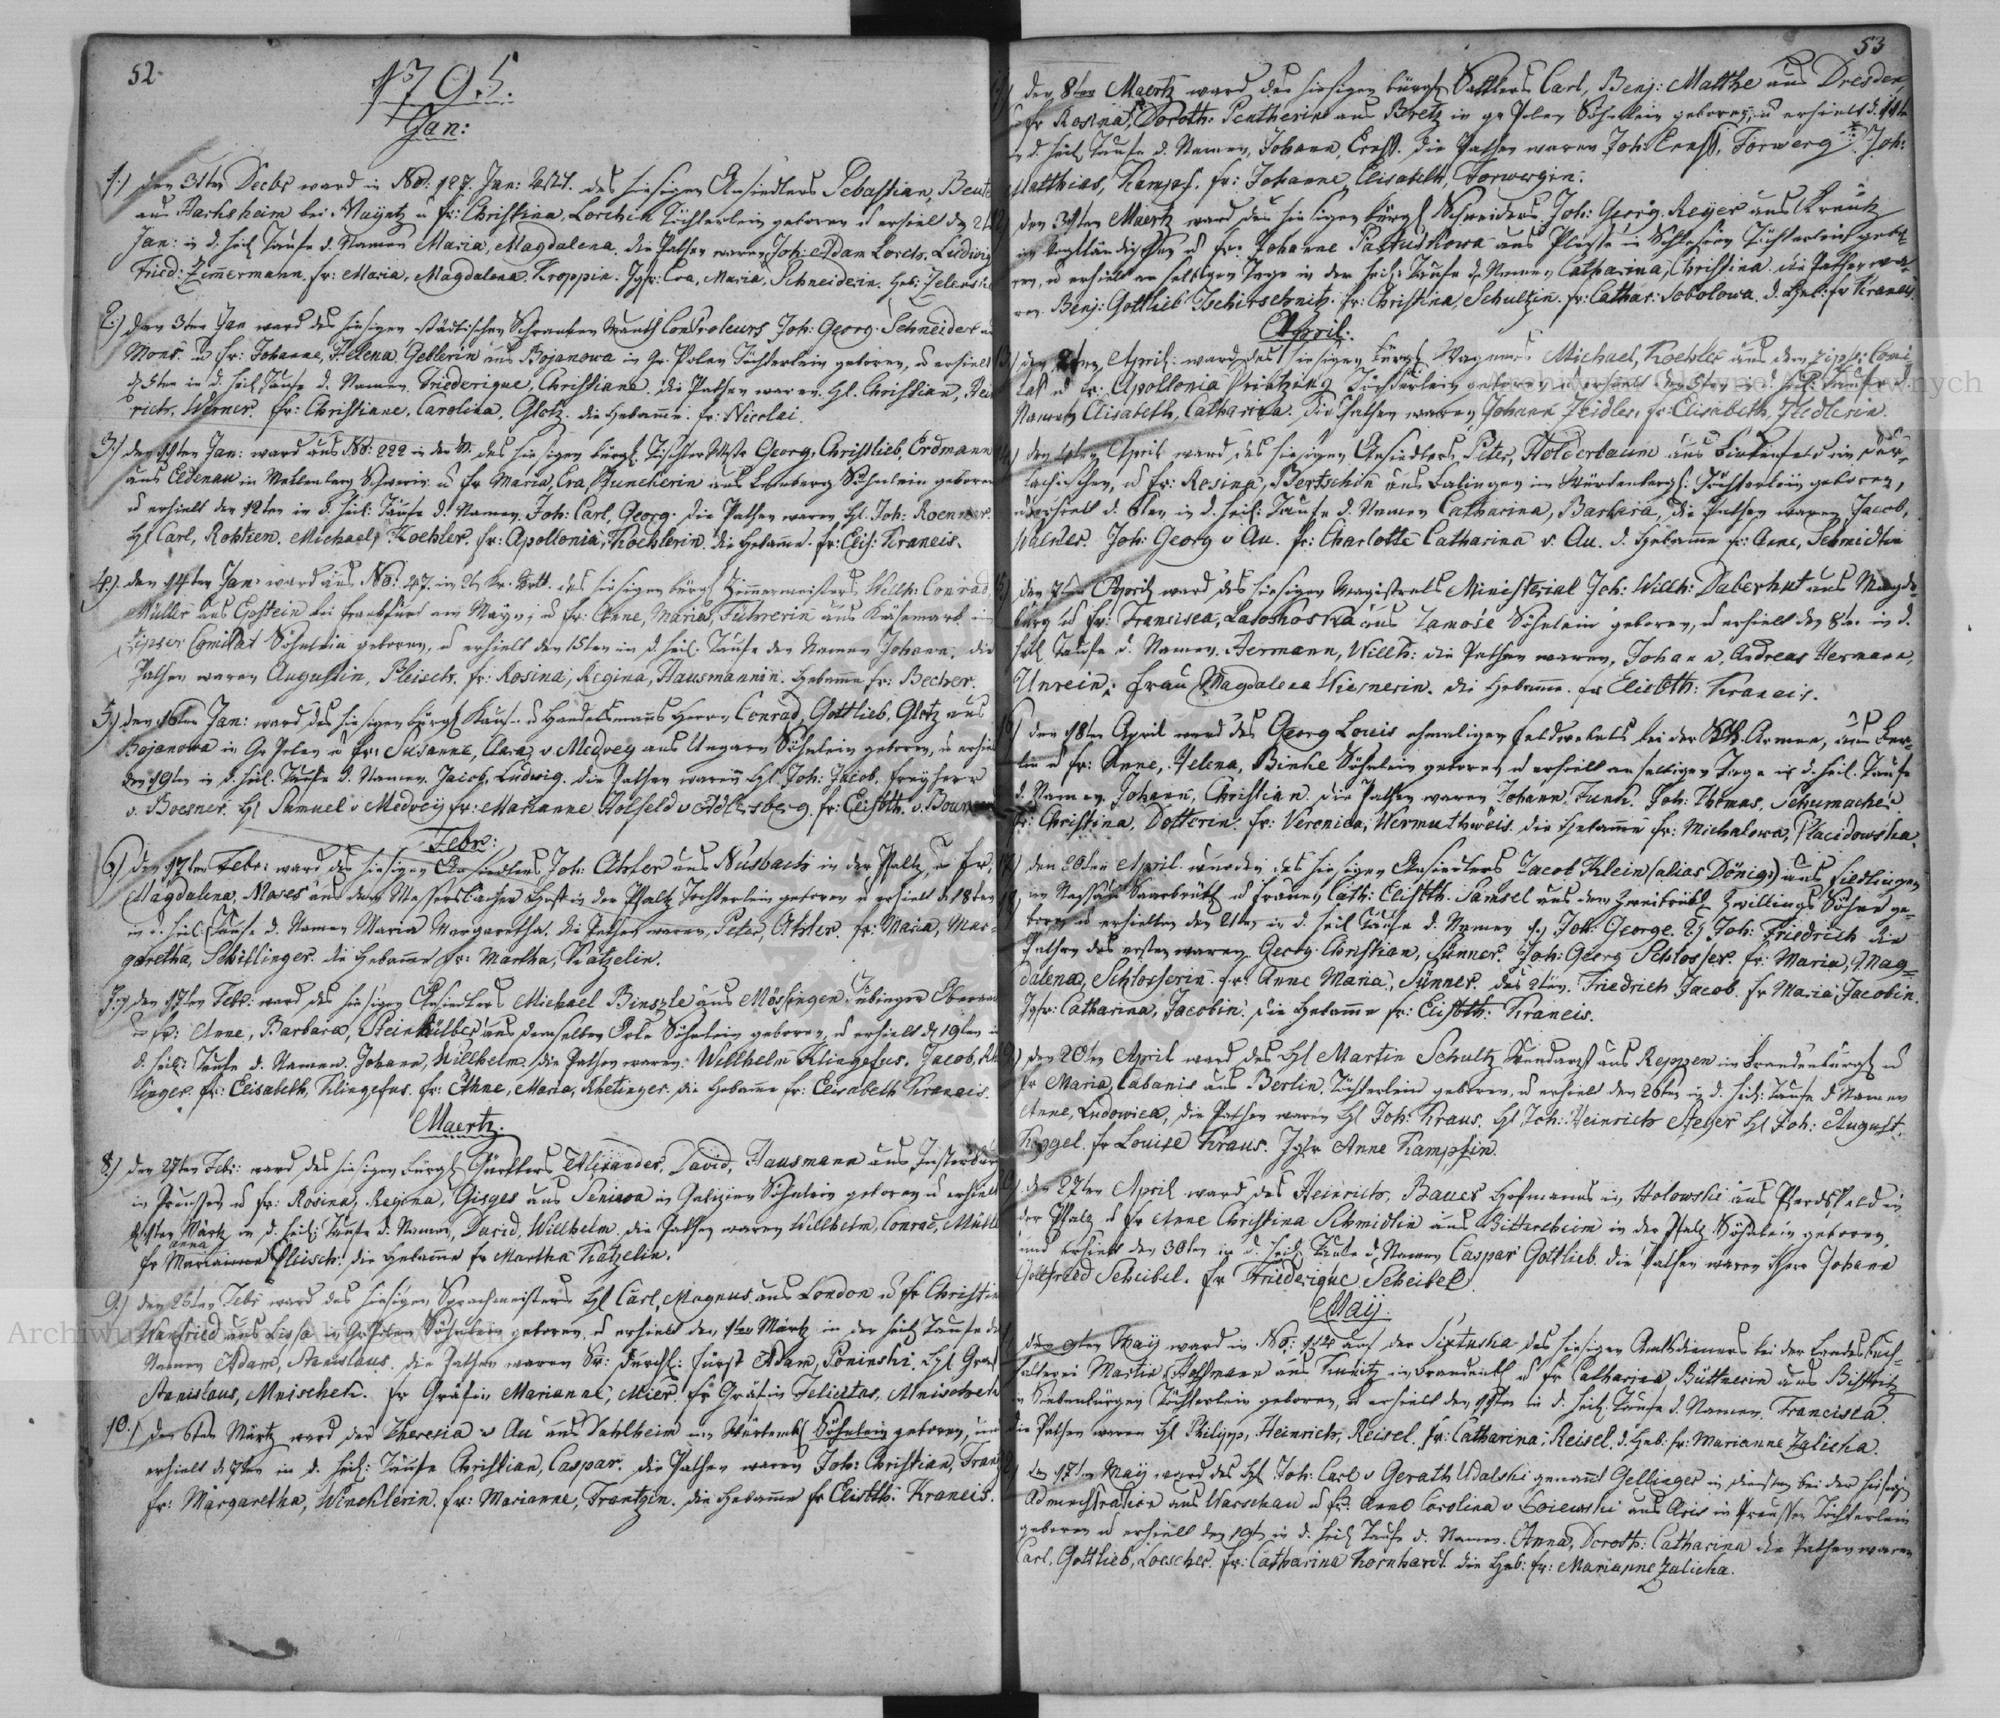 52.
1795.
Jan:
1.) den 31ten Decbr ward in No: 127. Jan: des hiesigen Ansiedlers Sebastian,
aus bei Mayntz u fr: Christina, Lorchin Töchterlein geboren u erhielt den
Jan: in d. heil. Taufe d. Namen Maria, Magdalena. die Pathen waren Joh: Adam Lorch. Ludwig
Fried: Zimmermann. fr: Maria, Magdalena. Kroppin. Jgfr: Eva, Maria, Schneiderin. Heb:
2.) den 3ten Jan ward des hiesigen städtischen Controleurs Joh: Georg. Schneider
u fr: Johanne, Helena, Geblerin aus Bojanowa in Gr. Polen Töchterlein geboren, u erhielt
d. 5ten in d. heil. Taufe d. Namen. Friederique, Christiana. die Pathen waren. Hl. Christian,
rich, Werner. fr: Christiane, Carolina, Glotz. die Hebamme. fr: Nicolai.
3.) den 11ten Jan: ward aus No: 222 in der des hiesigen bürgl. Tischler Mstr Georg, Christlieb, Erdmann
aus Eldenau in Meklenburg Schwerin. u fr Maria, Eva, aus Lemberg Söhnlein geboren
u erhielt den 12ten in d. heil. Taufe d. Namen. Joh: Carl, Georg. die Pathen waren Hl. Joh:
Hl Carl, Rohtien. Michael, Koehler. fr: Apollonia, Koehlerin. die Hebamme. fr: Elis: Kraneis.
4.) den 14ten Jan: ward aus No: 47. in des hiesigen bürgl Zimmermeisters Willh: Conrad
Müller aus Epstein bei Frankfurt am Mayn, u fr: Anne, Maria, Führerin aus Käsemark im
Zipser Comitat Söhnlein geboren, u erhielt den 15ten in d. heil. Taufe den Namen Johann. die
Pathen waren Augustin, Fleisch. fr: Rosina, Regina, Hausmannin. Hebamme fr: Becher.
5.) den 16ten Jan: ward des hiesigen bürgl Kauf- u Handelsmanns Herrn Conrad, Gottlieb, Glotz aus
Bojanowa in Gr Polen u fr: Susanne, Clara, v Medvey aus Ungarn Söhnlein geboren, u erhielt
den 19ten in d. heil. Taufe d. Namen. Jacob, Ludwig. die Pathen waren Hl. Joh: Jacob, Freyherr
v. Boesner. Hl Samuel v Medvey fr: Marianne Holfeld v Adlersberg. fr: Elisbth.
Febr:
6.) den 17ten Febr: ward des hiesigen Ansiedlers Joh: Ahler aus Nusbach in der Pfaltz, u fr.
Magdalena, Moses aus dem Messersbacher Hof in der Pfaltz Töchterlein geboren u erhielt d 18ten
in d. heil. Taufe d. Namen Maria Margaretha. die Pathen waren, Peter, Ahler. fr: Maria, Mar-
garetha, Schillinger. die Hebamme fr: Martha, Katzelin.
7.) den 17ten Febr: ward des hiesigen Ansiedlers Michael Binszle aus Mössingen Tübinger
u fr: Anne, Barbara, Steinhilber aus demselben Orte Söhnlein geboren, u erhielt d. 19ten in
d. heil: Taufe d. Namen. Johann, Willhelm. die Pathen waren. Willhelm Klingefus. Jacob,
linger. fr: Elisabeth, Klingefus. fr: Anne, Maria, Rhetinger. die Hebamme fr: Elisabeth Kraneis.
Maertz.
8.) den 27ten Feb: ward des hiesigen bürgl Gürtlers Alexander, David, Hausmann aus
in Preussen u fr: Rosina, Regina, Gisges aus Seniawa in Galizien Söhnlein geboren u erhielt
Märtz in d. heil: Taufe d. Namen, David, Willhelm. die Pathen waren Willhelm, Conrad,
anna
fr Marianne Fleisch. die Hebamme fr Martha Katzelin.
9.) den 26ten Febr ward des hiesigen Sprachmeisters Hl Carl, Magnus aus London u fr Christin
Hanfried aus Lissa in Gr Polen Söhnlein geboren, u erhielt den 1ten Märtz in der heil Taufe
Namen Adam, Stanislaus. die Pathen waren Sr: Durchl: Fürst Adam, Poninski. Hl Graf
Stanislaus, Mnischek. fr Gräfin Marianne, Mier. fr Gräfin Felicitas, Mnischek
10.) den 6ten Märtz ward der Theresia v Au aus Dahlheim im Würtemb: Söhnlein geboren, und
erhielt d 7ten in d. heil: Taufe Christian, Caspar. die Pathen waren Joh: Christian, Frantz
fr: Margaretha, Wincklerin. fr: Marianne, Frantzin. die Hebamme fr Elisbth: Kraneis.
53
den 8ten Maertz ward des hiesigen bürgl Sattlers Carl, Benj: Matthe aus Dresden,
u fr Rosina, Doroth: Pentherin aus Bretz in gr Polen Söhnlein geboren, u erhielt d.
in d. heil. Taufe d. Namen, Johann, Ernst. die Pathen waren Joh: Ernst, Forwerg. Joh:
Matthias, Kampf. fr: Johanne Elisabeth Forwergin.
den 31ten Maertz ward des hiesigen bürgl Schneiders Joh: Georg. Reyer aus
im Vogtländischen u fr: Johanne aus in Schlesien Töchterlein gebo-
ren, u erhielt am selbigen Tage in der heil: Taufe d. Namen Catharina, Christina. die Pathen wa-
ren. Benj: Gottlieb Tschirschnitz. fr: Christina, Schultzin. fr: Cathar: Sobolowa. d. Heb: fr Kraneis.
April:
den April: ward des hiesigen bürgl Wagners Michael, Koehler aus dem Zipser Comi-
tat u fr: Apollonia Töchterlein geboren u erhielt den 5ten in d. heil: Taufe d.
Namen Elisabeth, Catharina. die Pathen waren, Johann Zedler. fr: Elisabeth, Zedlerin.
den 4ten April ward, des hiesigen Ansiedlers Peter, Holderbaum aus Birkenfeld im Dur-
lachischen, u fr: Rosina, Bertschin aus Balingen im Würtenbergl: Töchterlein geboren,
u erhielt d. 6ten in d. heil: Taufe d. Namen Catharina, Barbara, die Pathen waren Jacob,
Walter. Joh: Georg v Au. fr: Charlotte Catharina v. Au. d. Hebamme fr: Anne, Schmidtin
den 7ten April ward des hiesigen Magistrats Ministerial Joh: Willh: Daberhut aus Magde-
burg u fr: Francisca, aus Zamosć Söhnlein geboren, u erhielt den 8ten in d.
heil Taufe d. Namen. Hermann, Willh: die Pathen waren, Johann, Andreas Hermann,
Unrein. Frau Magdalena Wiesnerin. die Hebamme. fr Elisbth: Kraneis.
den 18ten April ward des Georg Louis ehmaligen Feldwebels bei der Armee, aus Ber-
lin u fr: Anne, Helena, Binke Söhnlein geboren u erhielt am selbigen Tage in d. heil. Taufe
d. Namen. Johann, Christian. die Pathen waren Johann Funk. Joh: Thomas, Schumacher
fr: Christina, Dotterin. fr: Veronica, Wermuthweis. die Hebamme fr: Michalowa, Placidowska.
den 20ten April wurden des hiesigen Ansiedlers Jacob Klein (alias Dönig) aus Fiedlingen
im Nassau Saarbrück u Frauen Cath: Elisbth. Samsel aus dem Zweibrück Zwillings Söhne ge-
boren u erhielten den 21ten in d. heil Taufe d. Namen 1.) Joh: George. 2) Joh: Friedrich die
Pathen des ersten waren. Georg Christian, Sünner. Joh: Georg Schlosser. fr: Maria, Mag-
dalena, Schlosserin. fr: Anne Maria, Sünner. des 2ten. Friedrich Jacob. fr Maria Jacobin.
Jgfr: Catharina, Jacobin. die Hebamme fr: Elisbth: Kraneis.
den 20ten April ward des Hl Martin Schultz Wundarzt aus Reppen im Brandenburgl u
fr Maria, Cabanis aus Berlin. Töchterlein geboren, u erhielt den 26ten in d. heil: Taufe d Namen
Anne, Ludowica, die Pathen waren Hl Joh: Kraus. Hl Joh: Heinrich Steger Hl Joh: August.
Koggel. fr Louise Kraus. Jgfr Anne Kampfin.
den 27ten April ward des Heinrich, Bauer Hofmanns in Holowski aus Pferdsfeld in
der Pfalz u fr Anne Christina Schmidtin aus Bittersheim in der Pfalz Söhnlein geboren,
und erhielt den 30ten in d. heil Taufe d Namen Caspar Gottlieb. die Pathen waren Herr Johann
Gottfried Scheibel. fr Friederique Scheibel.
May.
den 9ten May ward in No: auf der Sixtuska des hiesigen Amtsdieners bei der Landesbuch-
halterei Martin, Hoffmann aus in Brandenb: u fr Catharina Büttnerin aus Bistritz
in Siebenbürgen Töchterlein geboren, u erhielt den 11ten in d. heil. Taufe d. Namen. Francisca.
die Pathen waren Hl Philipp, Heinrich, Reisel. fr: Catharina, Reisel. d. Heb: fr: Marianne Zalicha.
den 17ten May ward des Hl. Joh: Carl v Gerath Udalski genannt Gellinger in diensten bei der hiesig
Administration aus Warschau u fr: Anne Carolina v aus Aris in Preussen Töchterlein
geboren u erhielt den 19t in d. heil Taufe d. Namen. Anna, Doroth: Catharina die Pathen waren
Carl, Gottlieb, Loescher. fr: Catharina Kornhardt. die Heb: fr: Marianne Zalicha.